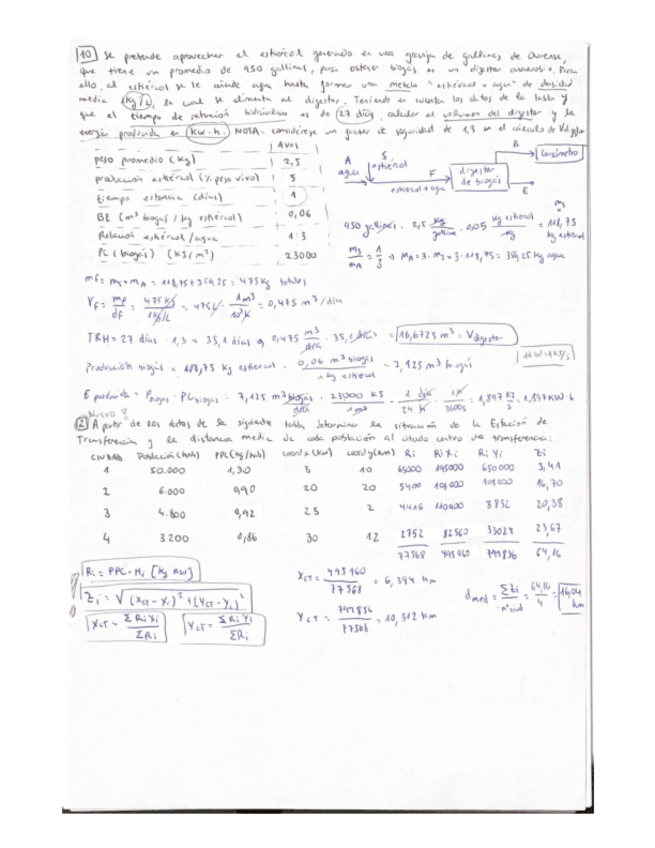 10 Se pretende aprovechar el estiércol generado en una granja de gallinas de Ourense,
que tiene un promedio de 950 gallinas, para obtener biogás en un digestor anaerobio. Para
ello, al estiércol se le añade agua hasta formar una mezcla "estiércol + agua" de densidad
media 1kg/L, la cual se alimenta al digestor. Teniendo en cuenta los datos de la tabla y
que el tiempo de retención hidráulico es de 27 días, calcular el volumen del digestor y la
energía producida en kW·h. NOTA: considérese un factor de seguridad de 1,3 en el cálculo de Vdigestor
Aves
peso promedio (kg) 2,5
producción estiércol (% peso vivo) 5
tiempo estancia (días) 1
BE (m³ biogás / kg estiércol) 0,06
Relación estiércol/agua 1:3
PC (biogás) (KJ/m³) 23000
A agua
S estiércol
F
estiércol + agua
digestor de biogás
B
Gasómetro
E
950 gallinas · 2,5 kg/gallina · 0,05 kg estiércol/kg = 118,75 kg estiércol
ms
ms/mA = 1/3 → mA = 3·ms = 3·118,75 = 356,25 kg agua
mF = ms + mA = 118,75 + 356,25 = 475 kg totales
VF = mF/dF = 475 kg / 1kg/L = 475 L · 1m³/10³L = 0,475 m³/día
TRH = 27 días · 1,3 = 35,1 días → 0,475 m³/día · 35,1 días = 16,6725 m³ = Vdigestor
Producción biogás = 118,75 kg estiércol · 0,06 m³ biogás / 1 kg estiércol = 7,125 m³ biogás
1kW = 1KJ/s
E producida = Pbiogas · PCbiogas = 7,125 m³ biogás/día · 23000 KJ/1m³ · 1 día/24 h · 1h/3600s = 1,897 KJ/s = 1,897 KW·h
Nuevo
2 A partir de los datos de la siguiente tabla determinar la situación de la Estación de
Transferencia y la distancia media de cada población al citado centro de transferencia:
CIUDAD Población (hab) PPC (kg/hab) coord x (km) coord y (km) Ri RiXi RiYi Zi
1 50.000 1,30 3 10 65000 195000 650000 3,41
2 6.000 0,90 20 20 5400 108000 108000 16,70
3 4.800 0,92 25 2 4416 110400 8832 20,38
4 3200 0,86 30 12 2752 82560 33024 23,67
77568 495960 799856 64,16
Ri = PPC · Hi [kg RSU]
Zi = √(xCT - xi)² + (yCT - yi)²
XCT = ΣRiXi/ΣRi
YCT = ΣRiYi/ΣRi
XCT = 495960/77568 = 6,394 km
YCT = 799856/77568 = 10,312 km
dmed = ΣZi/nºciud = 64,16/4 = 16,04 km